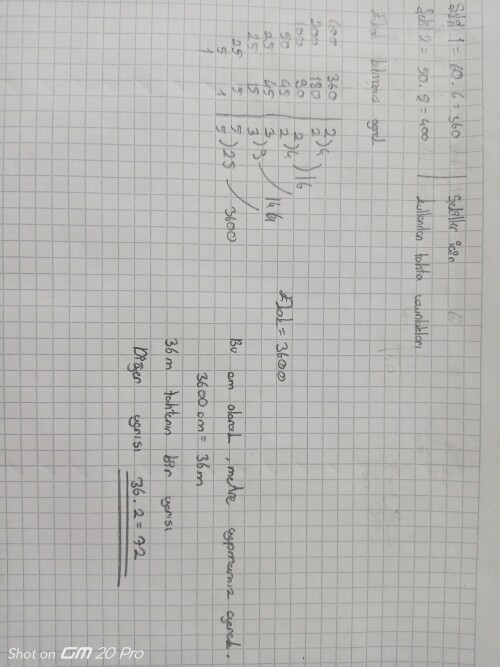 Şekil 1 = 60.6 = 360
Şekil 2 = 50.8 = 400
Şekiller için
kullanılan tahta uzunlukları
Ekok bulmamız gerek
400 360 | 2 ) 4
200 180 | 2
100 90 | 2 ) 4 ) 16
50 45 | 2
25 45 | 3 ) 9 144
25 15 | 3
25 5 | 5 ) 25 3600
5 1 | 5
1
Ekok = 3600
Bu cm olarak, metre yapmamız gerek.
3600 cm = 36 m
36 m tahtanın bir yarısı
Diğer yarısı 36.2 = 72
Shot on GM 20 Pro